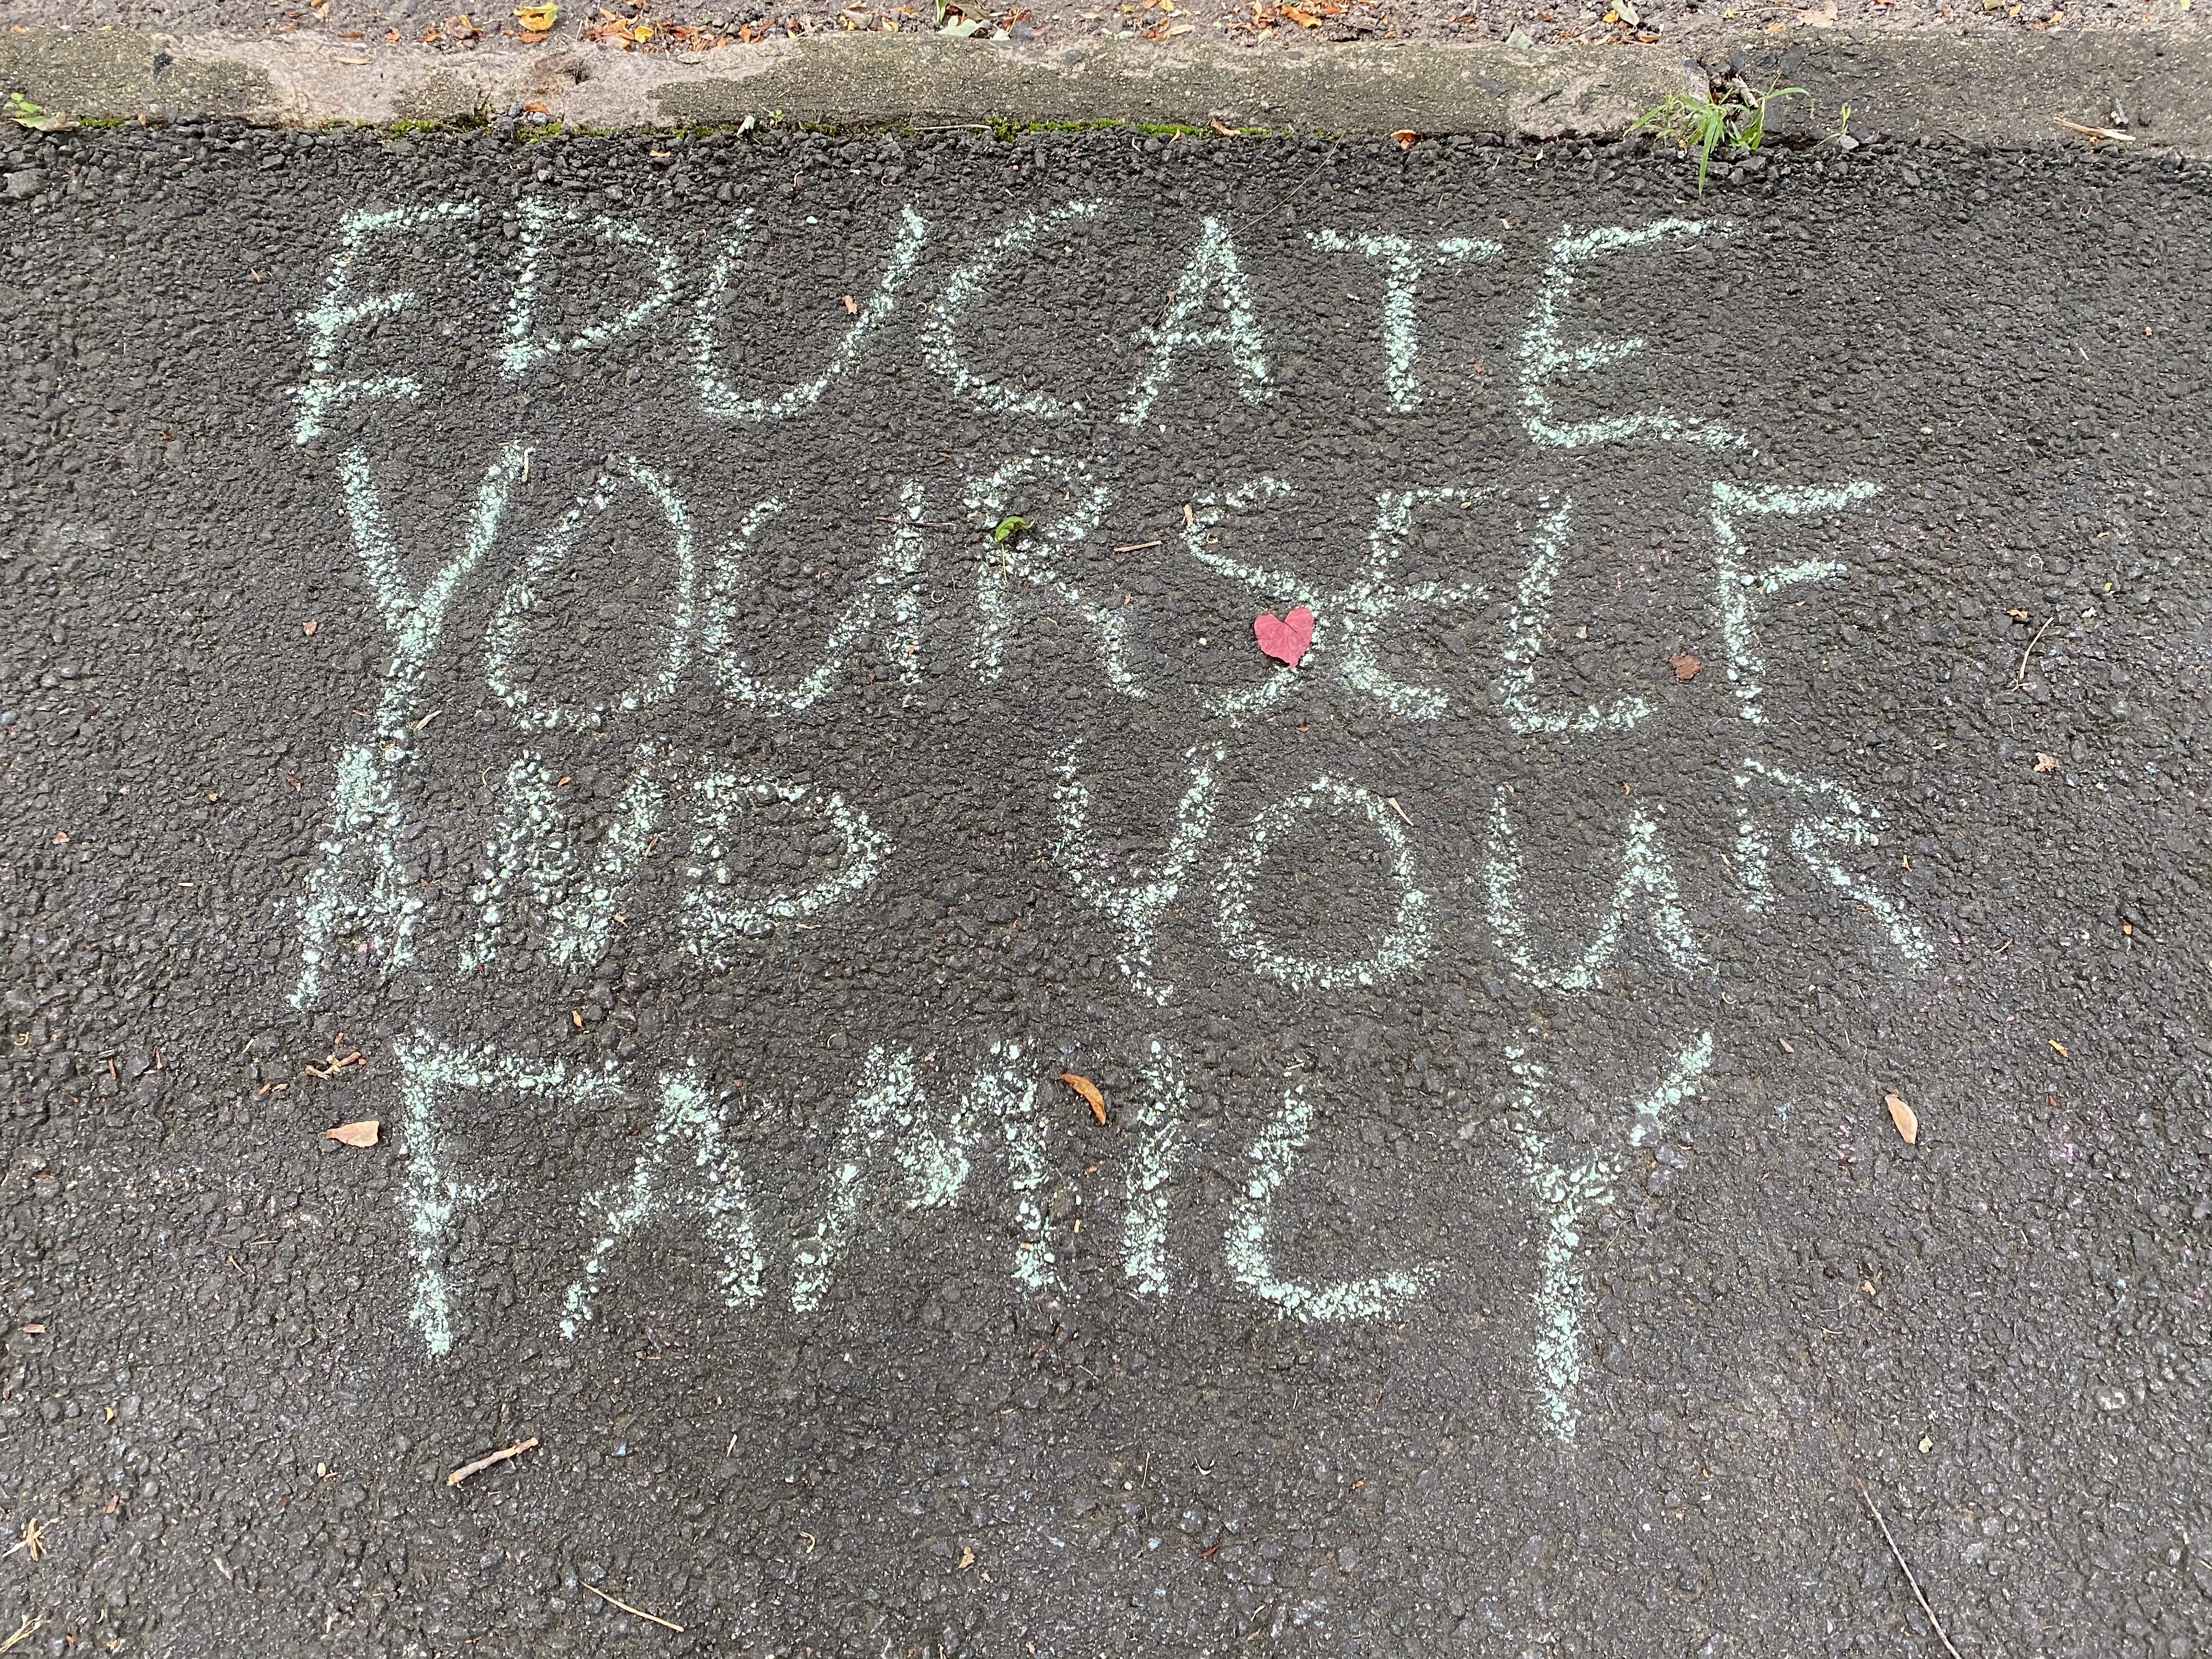 EDUCATE
YOURSELF
AND YOUR
FAMILY